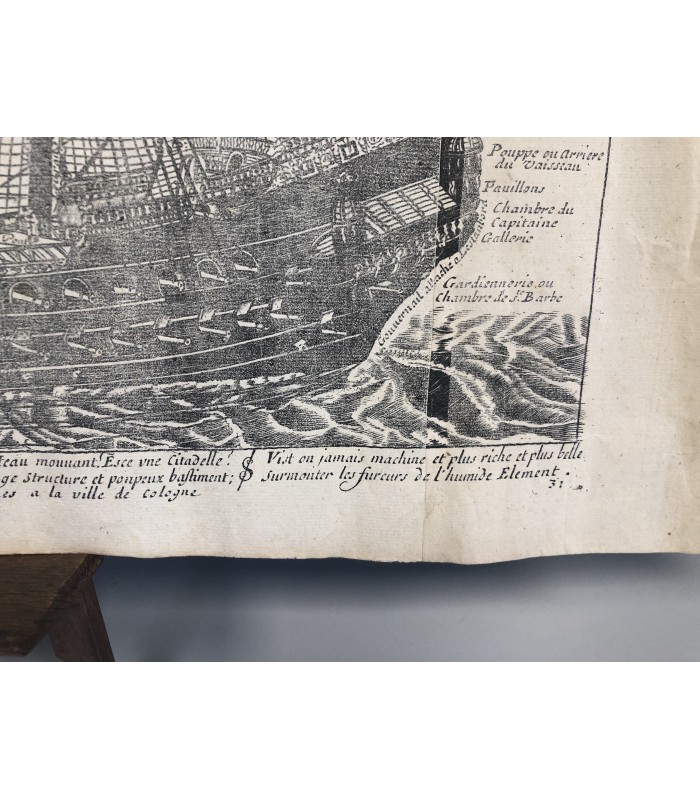 Pouppe ou Arriere
du Vaisseau
Pavillons
Chambre du
Capitaine
Gallerie
Gardiennerie, ou
Chambre de Ste. Barbe
Gouvernail attaché a
teau mouvant! Esce vne Citadelle?
ge Structure et ponpeux bastiment;
es a la ville de Cologne
Vist on jamais machine et plus riche et plus belle
Surmonter les fureurs de l'humide Element.
31